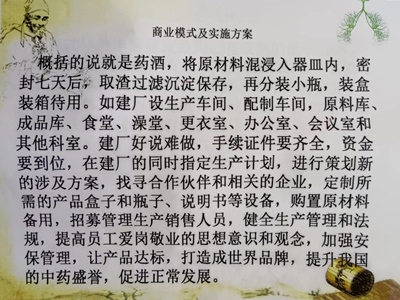 商业模式及实施方案
概括的说就是药酒，将原材料混浸入器皿内，密
封七天后，取渣过滤沉淀保存，再分装小瓶，装盒
装箱待用。如建厂设生产车间、配制车间，原料库、
成品库、食堂、澡堂、更衣室、办公室、会议室和
其他科室。建厂好说难做，手续证件要齐全，资金
要到位，在建厂的同时指定生产计划，进行策划新
的涉及方案，找寻合作伙伴和相关的企业，定制所
需的产品盒子和瓶子、说明书等设备，购置原材料
备用，招募管理生产销售人员，健全生产管理和法
规，提高员工爱岗敬业的思想意识和观念，加强安
保管理，让产品达标，打造成世界品牌，提升我国
的中药盛誉，促进正常发展。